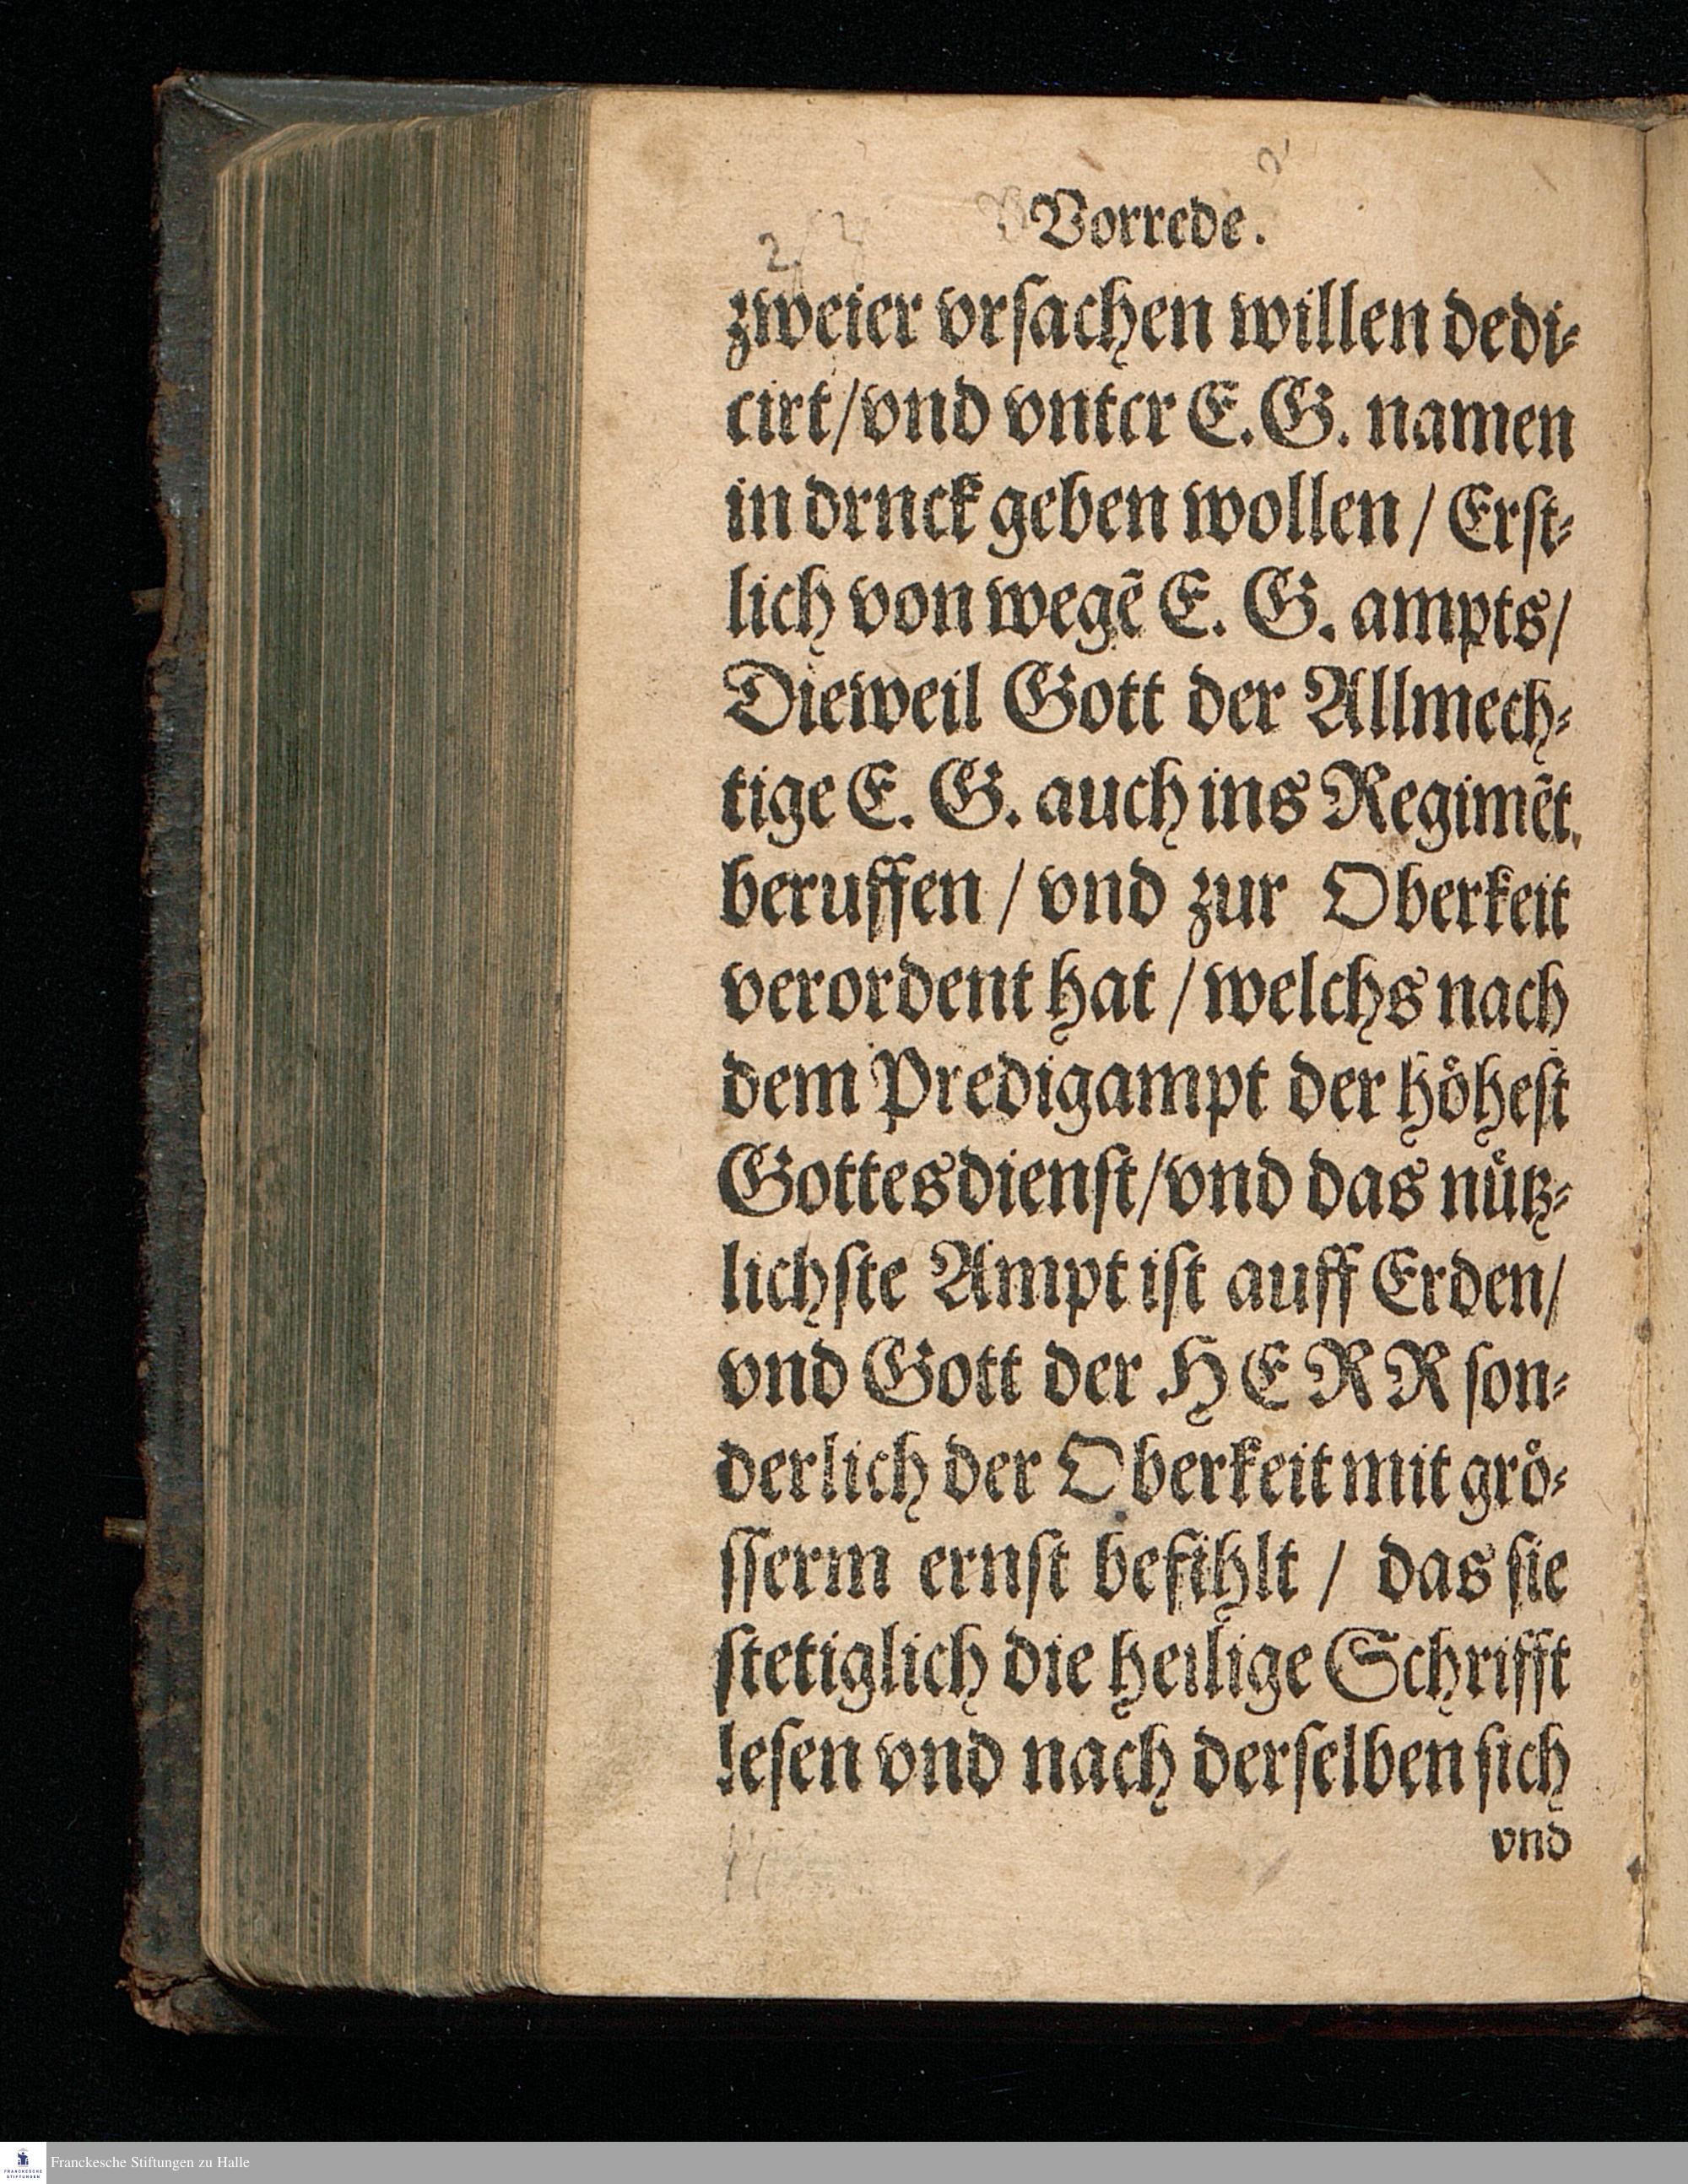 Vorrede.
zweier vrſachen willen dedi⸗
cirt/vnd vnter E.G. namen
in drnck geben wollen / Erſt⸗
lich von wegẽ E. G. ampts/
Dieweil Gott der Allmech⸗
tige E. G. auch ins Regimẽt.
beruffen / vnd zur Oberkeit
verordent hat / welchs nach
dem Predigampt der hoͤheſt
Gottesdienſt/vnd das nuͤtz⸗
lichſte Ampt iſt auff Erden/
vnd Gott der HERR ſon⸗
derlich der Oberkeit mit groͤ⸗
ſſerm ernſt befihlt / das ſie
ſtetiglich die heilige Schrifft
leſen vnd nach derſelben ſich
vnd
Franckesche Stiftungen zu Halle
FRANCKESCHE
STIFTUNGEN